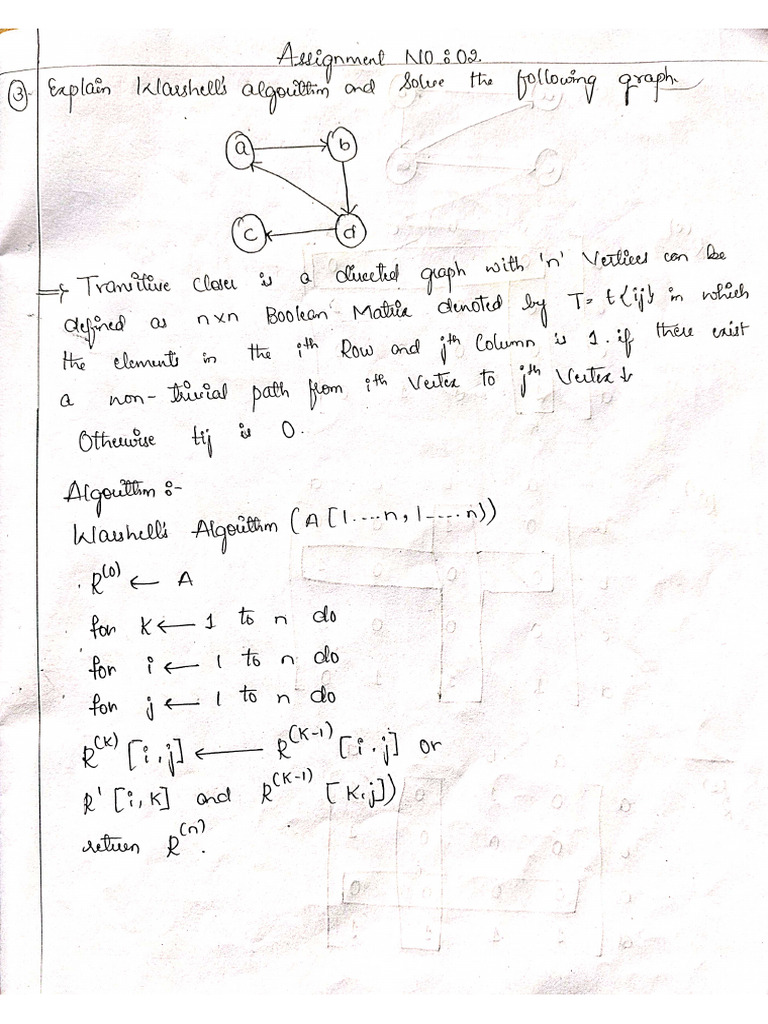 Assignment NO : 02.
③ Explain Warshell's algorithm and Solve the following graph.
a b
c d
⇒ Transitive closer is a directed graph with 'n' Vertices can be
defined as n×n Boolean Matrix denoted by T= t{ij} in which
the elements in the ith Row and jth Column is 1. if there exist
a non-trivial path from ith Vertex to jth Vertex
Otherwise tij is 0.
Algorithm :-
Warshell's Algorithm (A[1....n, 1....n])
R(0) ← A
for K ← 1 to n do
for i ← 1 to n do
for j ← 1 to n do
R(K) [i,j] ← R(K-1) [i,j] or
R' [i,K] and R(K-1) [K,j])
return R(n).